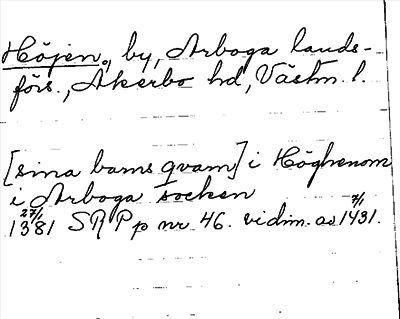 Höjen, by, Arboga lands-
förs., Åkerbo hd, Västm. l.
[sina barns qvarn] i Höghenom
i Arboga socken
27/1 1381 SRAP p nr 46. vidim. av 7/1 1431.